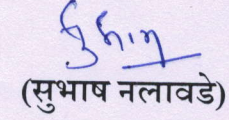 (सुभाष नलावडे)